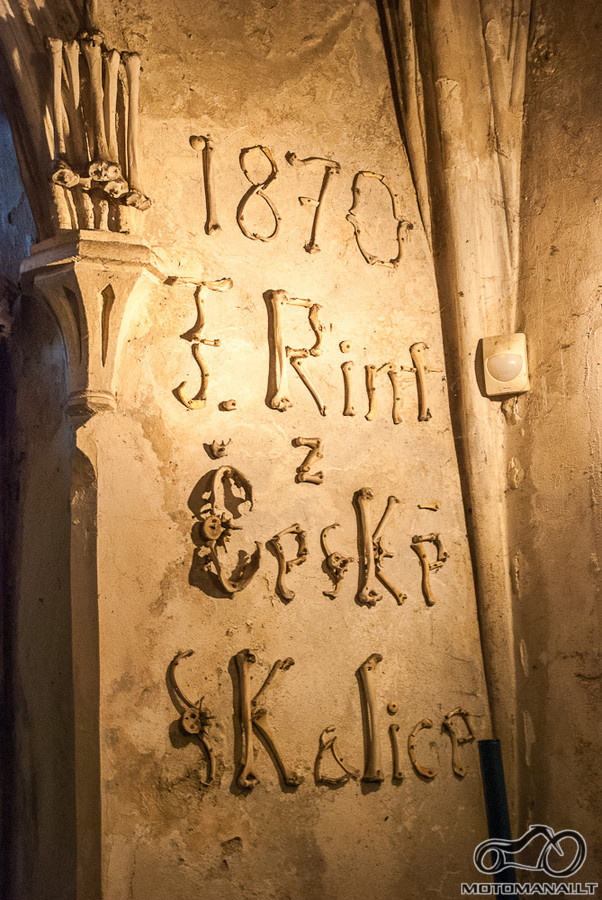 1870
F. Rint
z
České
Skalice
MOTOMANAI.LT